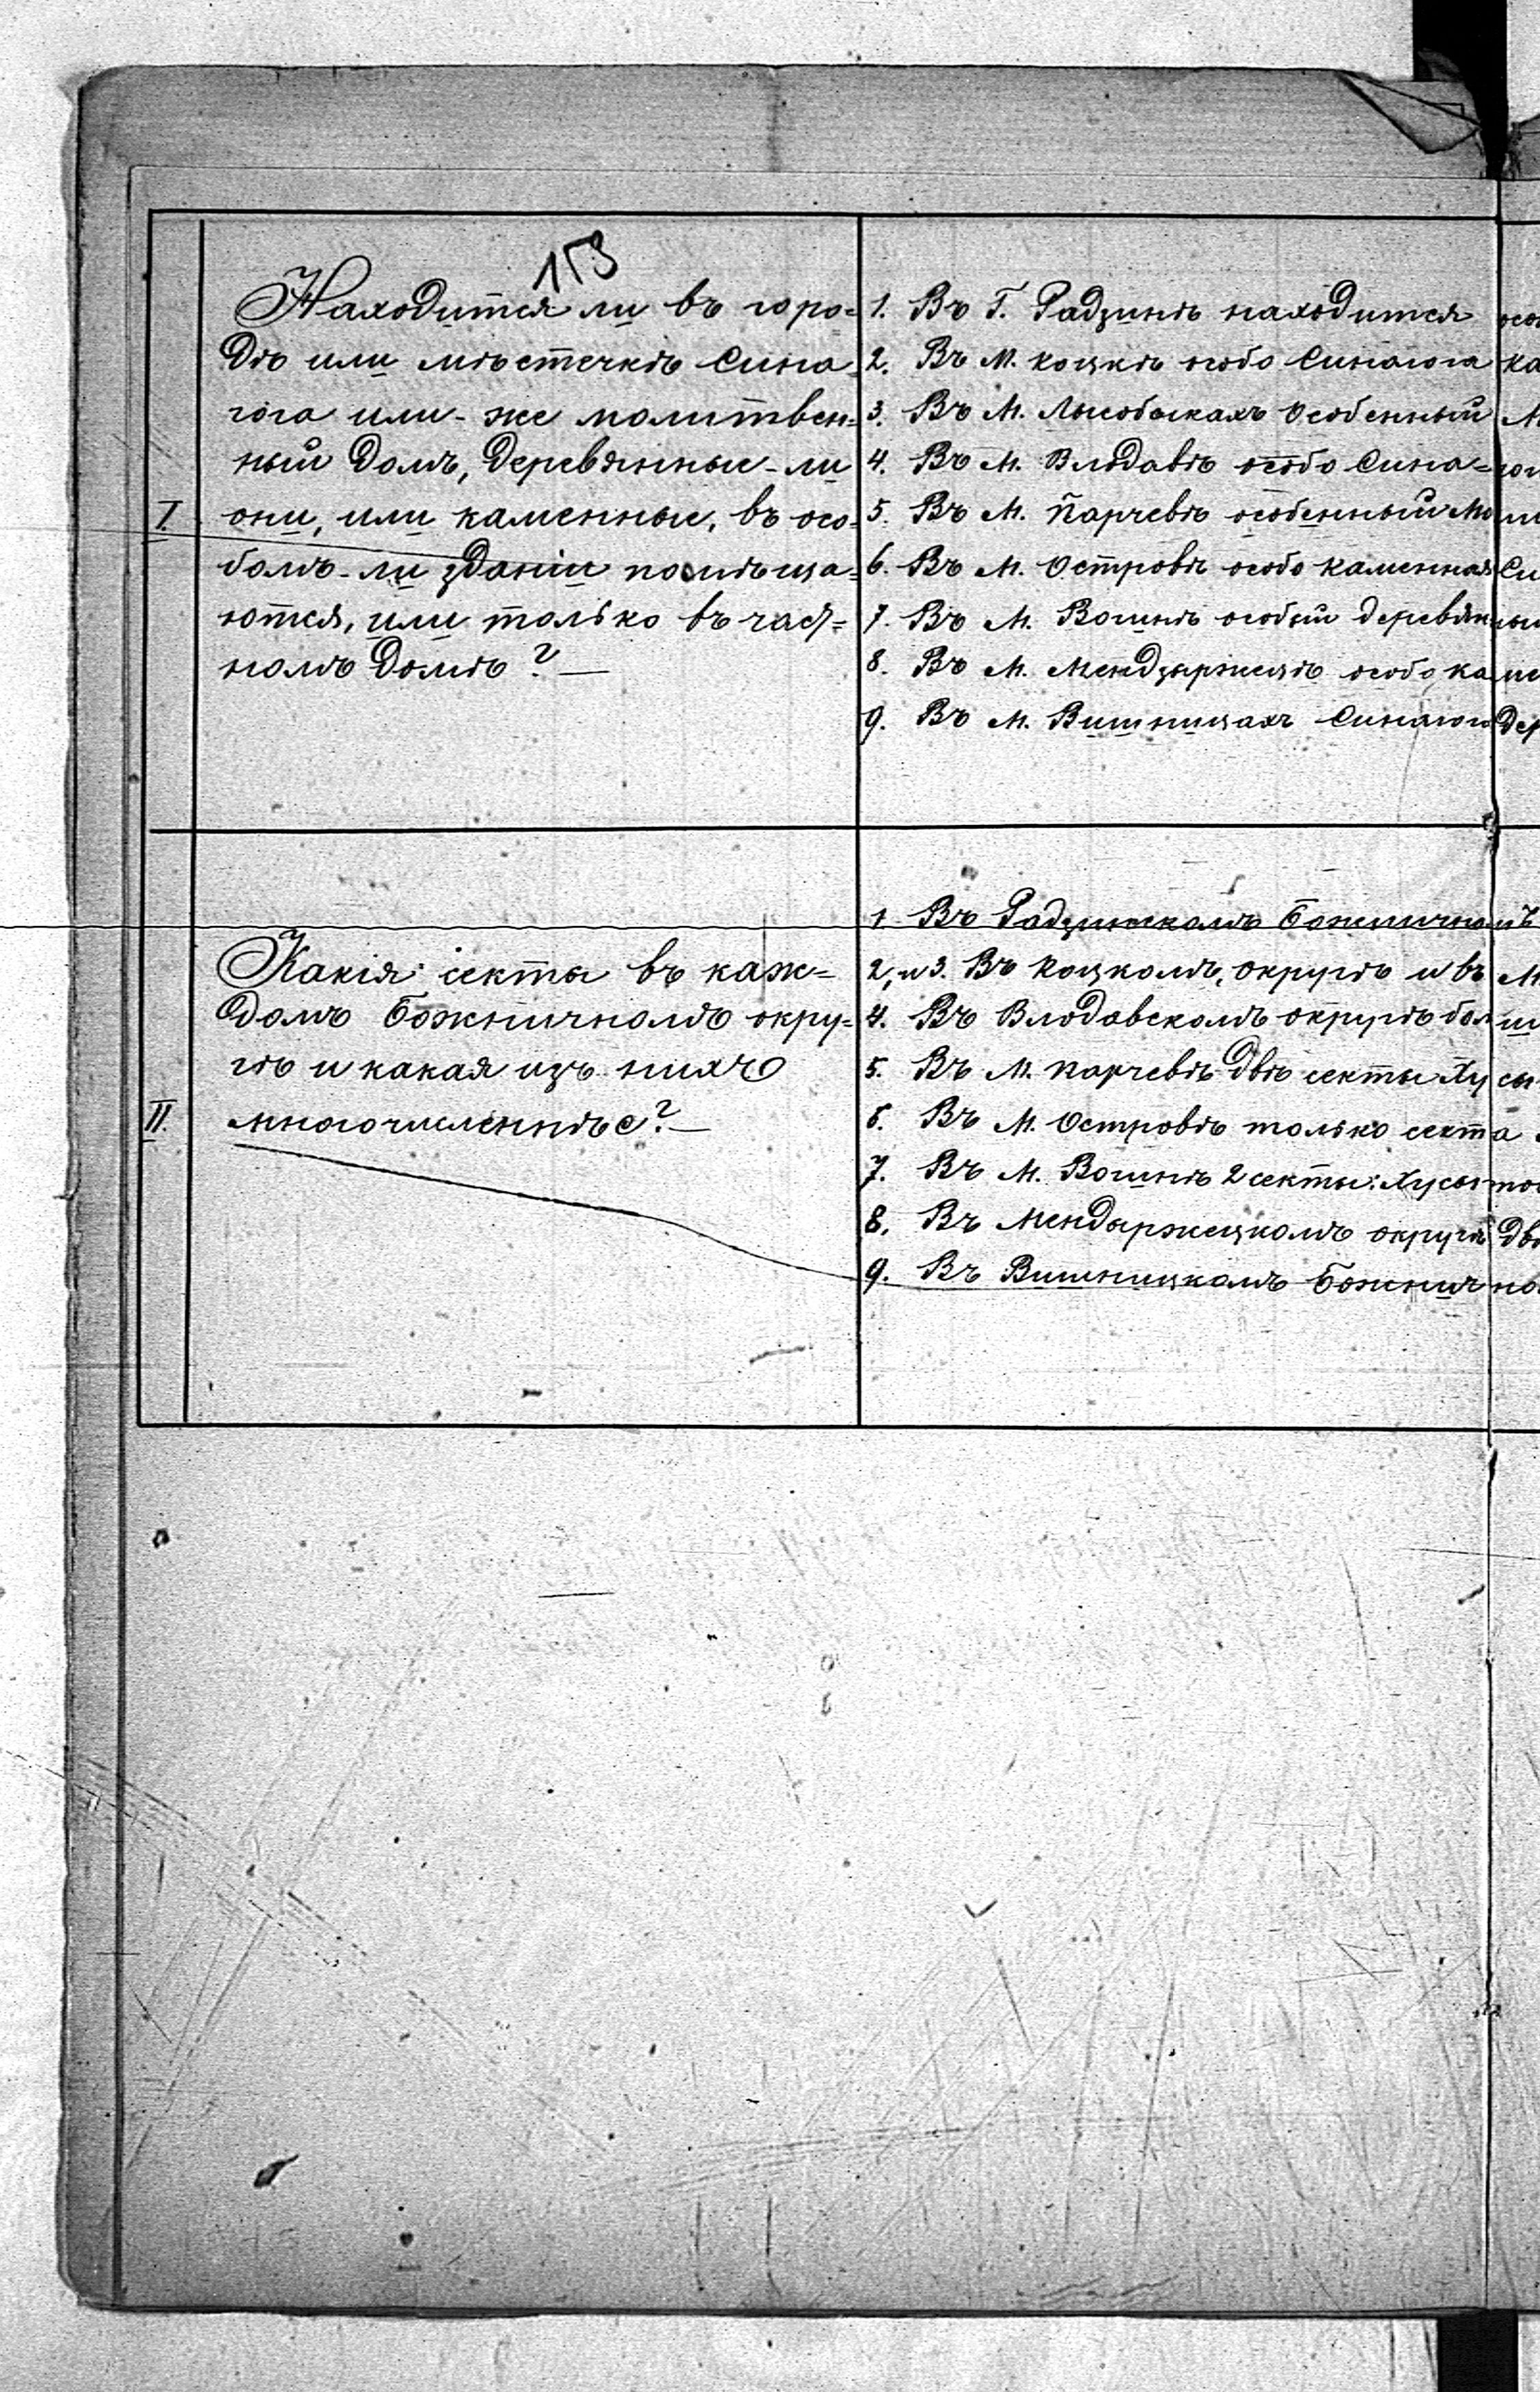 153
Находится ли въ горо=
дѣ или мѣстечкѣ Сина=
гога или-же молитвен=
ный домъ, деревянные-ли
I. они, или каменные, въ осо=
бомъ-ли зданіи помѣща=
ются, или только въ част=
номъ домѣ?—
1. Въ Г. Радзинѣ находится осо
2. Въ М. Коцкѣ особо Синагога ка
3. Въ М. Лысобыкахъ Особенный М
4. Въ М. Влодавѣ особо Сина=гог
5. Въ М. Парчевѣ особенный Мо ли
6. Въ М. Островѣ особо каменная Си
7. Въ М. Вогинѣ особый деревян ный
8. Въ М. Мендзыржецѣ особо ка ме
9. Въ М. Вишницахъ Синагога дер
Какія секты въ каж=
домъ Божничномъ окру=
гѣ и какая изъ нихъ
II. многочисленнѣе?—
1. Въ Радзинскомъ Божнично мъ
2, и 3. Въ Коцкомъ, округѣ и въ М.
4. Въ Влодавскомъ округѣ бол ш
5. Въ М. Парчевѣ двѣ секты Ху сы
6. Въ М. Островѣ только сект а
7. Въ М. Вогинѣ 2 секты: Хусы
8. Въ Мендыржецкомъ округѣ дв
9. Въ Вишницкомъ Божнич но